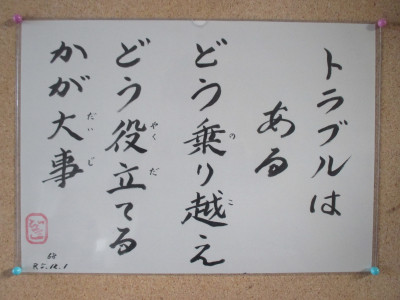 トラブルは
ある
どう乗り越え
どう役立てる
かが大事
の
こ
やく
だ
だいじ
R5.12.1